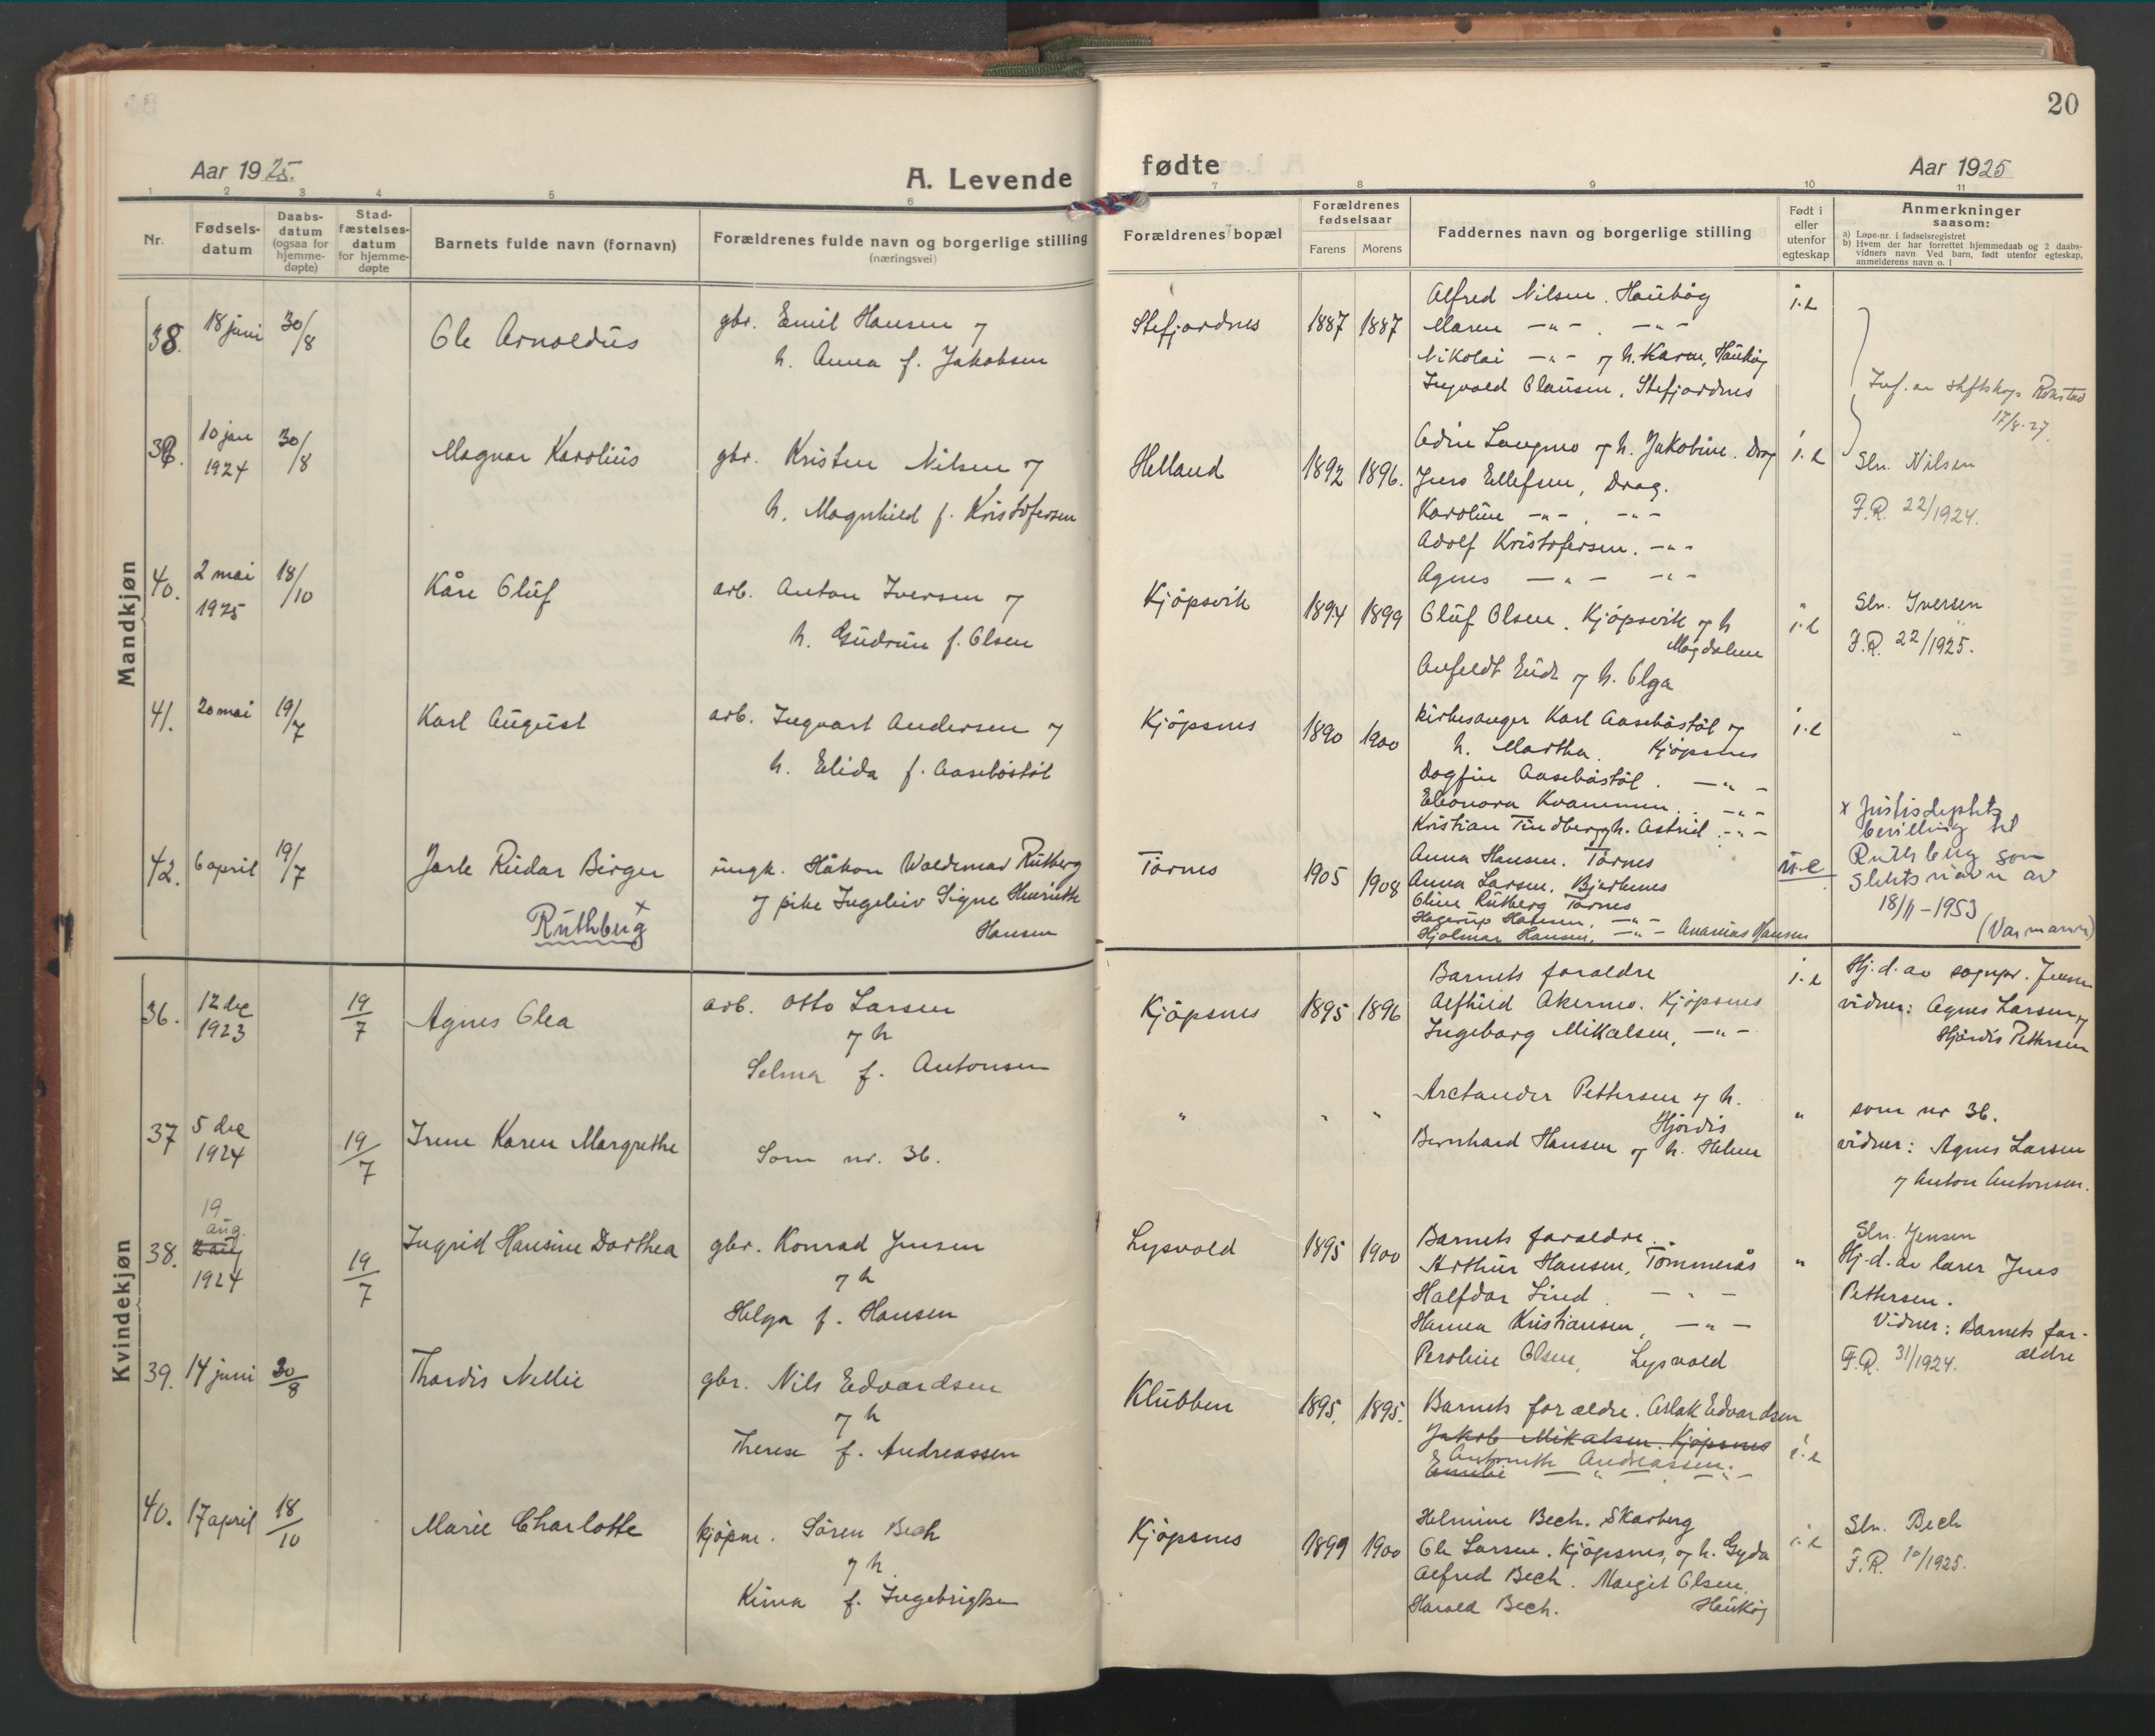 20
Aar 1925.
A. Levende
fødte
Aar 1925
1 2 3 4 5 6 7 8 9 10 11
Nr.
Fødsels-
datum
Daabs-
datum
(ogsaa for
hjemme-
døpte)
Stad-
fæstelses-
datum
for hjemme-
døpte
Barnets fulde navn (fornavn)
Forældrenes fulde navn og borgerlige stilling
(næringsvei)
Forældrenes bopæl
Forældrenes
fødselsaar
Farens Morens
Faddernes navn og borgerlige stilling
Født i
eller
utenfor
egteskap
Anmerkninger
saasom:
a) Løpe-nr. i fødselsregistret
b) Hvem der har forrettet hjemmedaab og 2 daabs-
vidners navn. Ved barn, født utenfor egteskap,
anmelderens navn o. l
Mandkjøn
38. 18 juni 30/8
Ole Arnoldus
gbr. Emil Hansen og
h. Anna f. Jakobsen
Stefjordnes 1887 1887
Alfred Nilsen. Haukøy
Maren -"- . -"-
Nikolai -"- og h. Karen, Haukøy
Ingvald Olausen, Stefjordnes
i.e
17/8-27.
39. 10 jan 1924 30/8
Magnar Karolius
gbr. Kristen Nilsen og
h. Magnhild f. Kristofersen
Helland 1892 1896.
Adin Langmo og h. Jakobine. Drag
Jens Ellefsen, Drag.
Karoline -"- . -"-
Adolf Kristofersen. -"-
Agnes -"- -"-
i.e
Sln. Nilsen
F.R. 22/1924.
40. 2 mai 1925 18/10
Kåre Oluf
arb. Anton Iversen og
h. Gudrun f. Olsen
Kjøpsvik 1894 1899
Oluf Olsen. Kjøpsvik og h
Magdalene
Anfeldt Eide og h. Olga
i.e
Sln. Iversen
F.R. 22/1925.
41. 20 mai 19/7
Karl August
arb. Ingvart Andersen og
h. Elida f. Aasebøstøl
Kjøpsnes 1890 1900
kirkesanger Karl Aasebøstøl og
h. Martha. Kjøpsnes
Dagfin Aasebøstøl. -"-
Eleonora Kvammen. -"-
Kristian Tindberg og h. Astrid. -"-
i.e
42. 6 april 19/7
Jarle Reidar Birger
Ruthberg x
ungk. Håkon Waldemar Rutberg
og pike Ingeleiv Signe Henriette
Hansen
Tørnes 1905 1908
Anna Hansen. Tørnes
Anna Larsen. Bjerknes
Oline Rutberg Tørnes
Hagerup Hansen, -"-
Hjalmar Hansen, -"- Ananias Hansen
u.e
x Justisdeptets
bevilling til
Ruthberg som
slektsnavn av
18/11-1953
(Varmann)
Kvindekjøn
36. 12 dec 1923 19/7
Agnes Olea
arb. Otto Larsen
og h
Selma f. Antonsen
Kjøpsnes 1895 1896
Barnets forældre
Alfhild Akermo. Kjøpsnes
Ingeborg Mikalsen, -"-
i.e
Hj.d. av sognpr. Jensen
vidner: Agnes Larsen og
Hjørdis Pettersen
37 5 dec 1924 19/7
Irene Karen Margrethe
Som nr. 36.
" " "
Arctander Pettersen og h.
Hjørdis
Bernhard Hansen og h. Helene
"
som nr 36.
vidner: Agnes Larsen
og Anton Antonsen.
38. 19 aug. 2 aug 1924 19/7
Ingrid Hansine Dorthea
gbr. Konrad Jensen
og h
Helga f. Hansen
Lysvold 1895 1900
Barnets forældre.
Arthur Hansen, Tømmerås
Halfdar Lind. -"-
Hanna Kristiansen, -"-
Peroline Olsen, Lysvold
"
Sln. Jensen
Hj.d. av lærer Jens
Pettersen.
Vidner: Barnets for-
ældre
F.R. 31/1924.
39. 14 juni 30/8
Thordis Nellie
gbr. Nils Edvardsen
og h
Therese f. Andreassen
Klubben 1895. 1895.
Barnets forældre. Aslak Edvardsen
Jakob Mikalsen. Kjøpsnes
Antonette Andreassen.
Emelie -"- -"-
i.e
40. 17 april 18/10
Marie Charlotte
kjøpm. Søren Bech
og h.
Kima f. Ingebrigtsen
Kjøpsnes 1899 1900
Helmine Bech. Skarberg
Ole Larsen. Kjøpsnes, og h. Gyda
Alfred Bech. Margit Olsen.
Harald Bech. Haukøy
i.e
Sln. Bech
F.R. 10/1925.